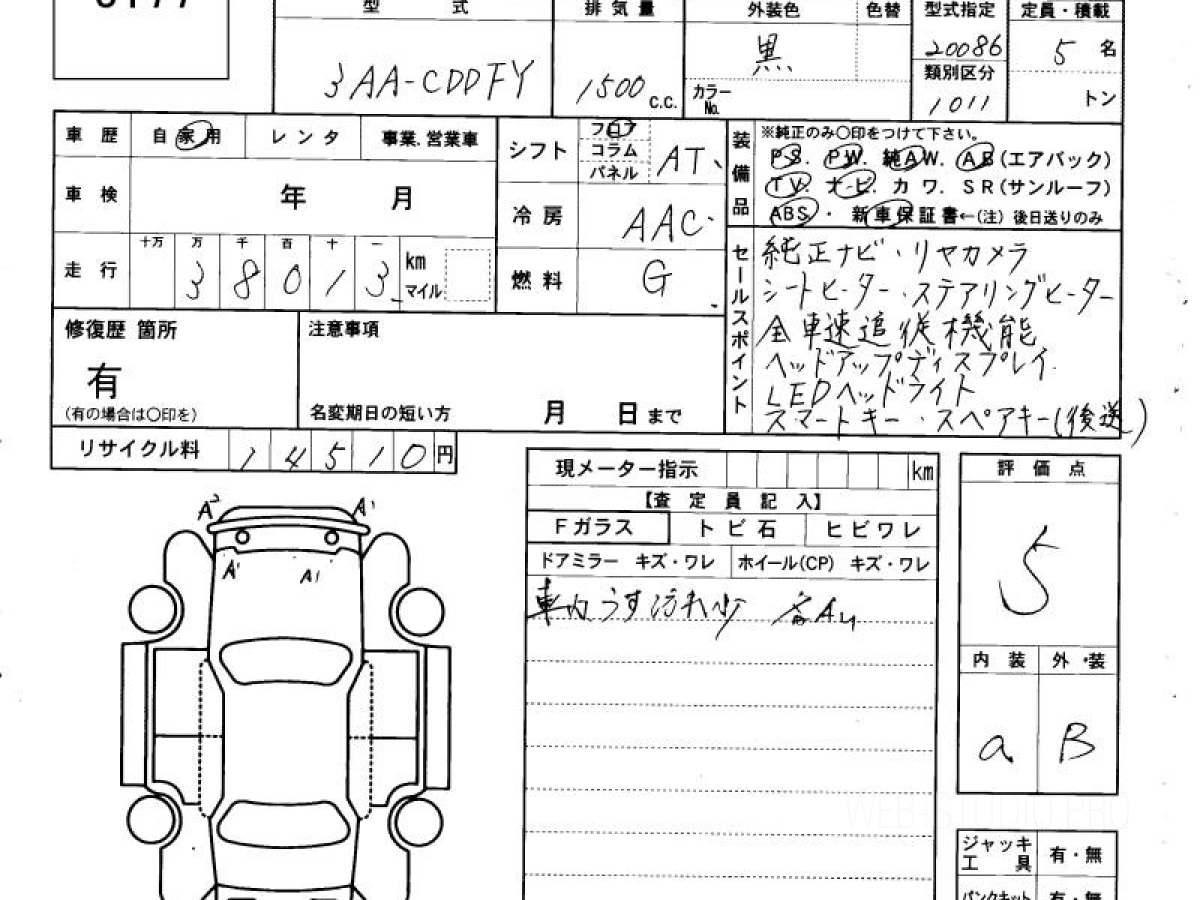 型 式 排 気 量 外装色 色替 型式指定 定員・積載
3AA-CDDFY 1500 C.C. 黒 20086 5 名
カラーNo. 類別区分 1011 トン
車 歴 自 家 用 レ ン タ 事業.営業車 シフト フロア コラム パネル AT
装備品 ※純正のみ〇印をつけて下さい。
PS. PW. 純AW. AB(エアバック)
TV. ナビ. カ ワ. SR(サンルーフ)
ABS ・ 新車保証書←(注) 後日送りのみ
車 検 年 月 冷 房 AAC
走 行 十万 万 千 百 十 一 km マイル
3 8 0 1 3
燃 料 G
セールスポイント
純正ナビ・リヤカメラ
シートヒーター・ステアリングヒーター
全車速追従機能
ヘッドアップディスプレイ
LEDヘッドライト
スマートキー・スペアキー(後送)
修復歴 箇所 注意事項
有
(有の場合は〇印を) 名変期日の短い方 月 日 まで
リサイクル料 1 4 5 1 0 円
現メーター指示 km 評 価 点
【査 定 員 記 入】
Fガラス ト ビ 石 ヒ ビ ワ レ
ドアミラー キズ・ワレ ホイール(CP) キズ・ワレ
車内うす汚れ少
A2 A1
A1 A1
5
内 装 外 装
a B
WEB-STUDIO PRO
ジャッキ 工 具 有・無
パンクキット 有・無